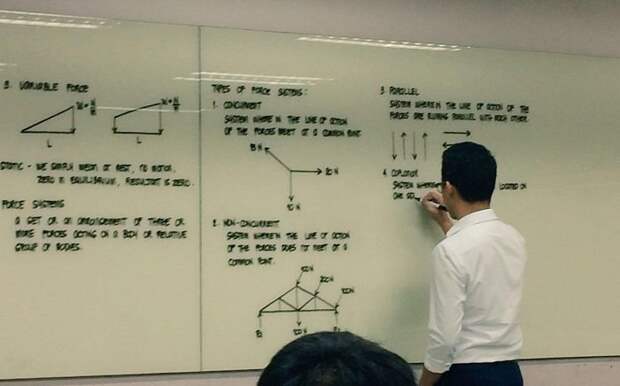 3. VARIABLE FORCE
L
L
STATIC - WE SIMPLY MEAN AT REST, NO MOTION,
ZERO IN EQUILIBRIUM, RESULTANT IS ZERO.
FORCE SYSTEMS
A SET OR AN ARRANGEMENT OF THREE OR
MORE FORCES ACTING ON A BODY OR RELATIVE
GROUP OF BODIES.
TYPES OF FORCE SYSTEMS:
1. CONCURRENT
SYSTEM WHEREIN THE LINE OF ACTION
OF THE FORCES MEET AT A COMMON POINT.
20 N
10 N
2. NON-CONCURRENT
SYSTEM WHEREIN THE LINE OF ACTION
OF THE FORCES DOES NOT MEET AT A
COMMON POINT.
3. PARALLEL
SYSTEM WHEREIN THE LINE OF ACTION OF THE
FORCES ARE RUNNING PARALLEL WITH EACH OTHER.
4. COPLANAR
SYSTEM LOCATED ON
ONE